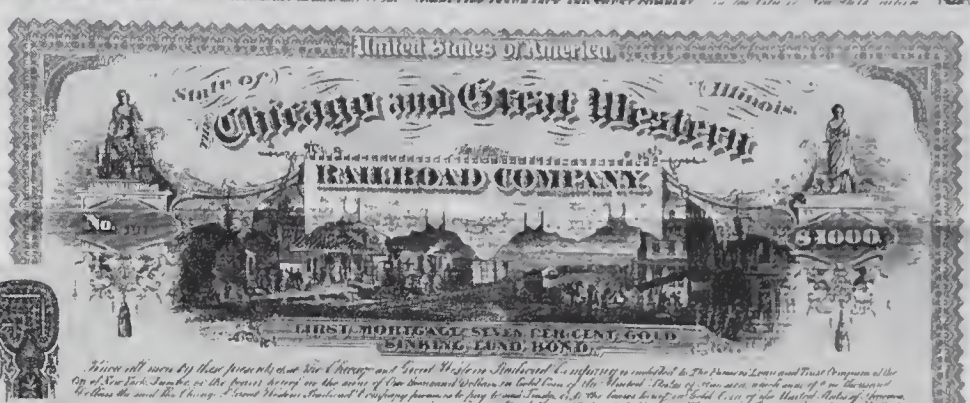 United States of America.
State of Illinois.
The Chicago and Great Western
RAILROAD COMPANY
No.
$1000
FIRST MORTGAGE SEVEN PER CENT GOLD
SINKING FUND BOND.
Know all men by these presents, that The Chicago and Great Western Railroad Company is indebted to The Farmers Loan and Trust Company of the
City of New York, Trustee, or the bearer hereof in the sum of One thousand Dollars in Gold Coin of the United States of America, which sum of One thousand
Dollars the said The Chicago & Great Western Railroad Company promises to pay to said Trustee, or to the bearer hereof in Gold Coin of the United States of America,